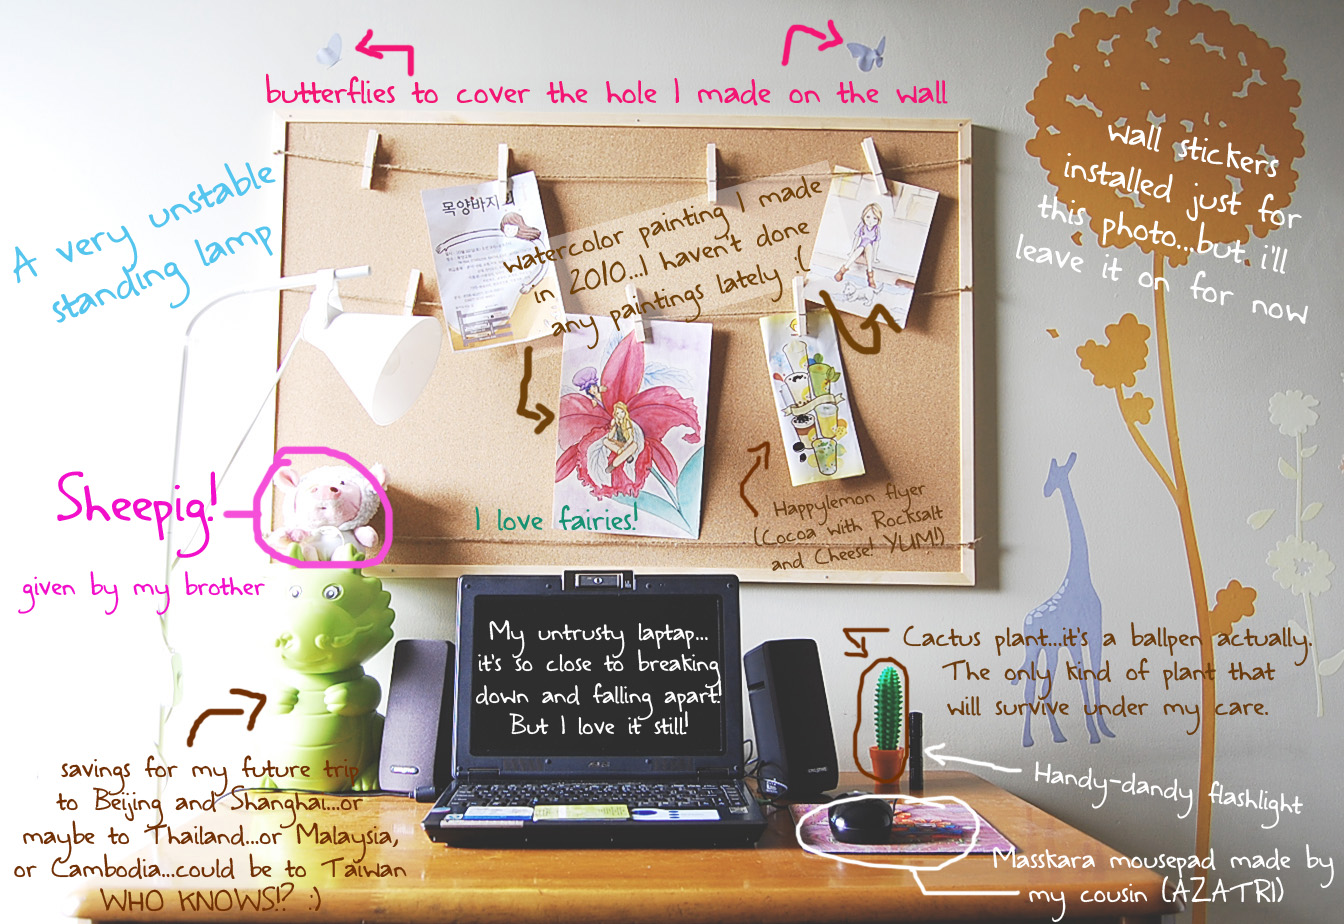 butterflies to cover the hole I made on the wall
A very unstable
standing lamp
목양바지
watercolor painting I made
in 2010...I haven't done
any paintings lately :(
wall stickers
installed just for
this photo...but i'll
leave it on for now
Sheepig!
given by my brother
I love fairies!
Happylemon flyer
(Cocoa with Rocksalt
and Cheese! YUM!)
My untrusty laptop...
it's so close to breaking
down and falling apart!
But I love it still!
Cactus plant...it's a ballpen actually.
The only kind of plant that
will survive under my care.
savings for my future trip
to Beijing and Shanghai...or
maybe to Thailand...or Malaysia,
or Cambodia...could be to Taiwan
WHO KNOWS!? :)
Handy-dandy flashlight
Masskara mousepad made by
my cousin (AZATRI)